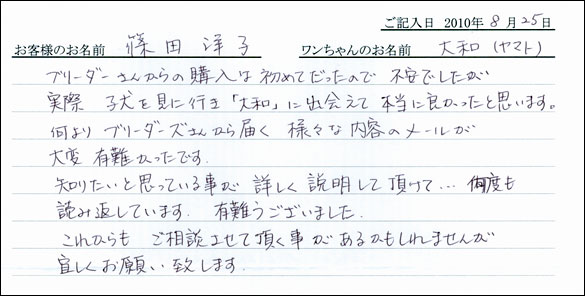 ご記入日 2010年 8月25日
お客様のお名前 篠田 洋子 ワンちゃんのお名前 大和 (ヤマト)
ブリーダーさんからの購入は初めてだったので 不安でしたが
実際 子犬を見に行き「大和」に出会えて本当に良かったと思います。
何より ブリーダーズさんから届く 様々な内容のメールが
大変 有難かったです.
知りたいと思っている事が 詳しく 説明して頂けて… 何度も
読み返しています. 有難うございました.
これからも ご相談させて頂く事があるかもしれませんが
宜しくお願い致します.